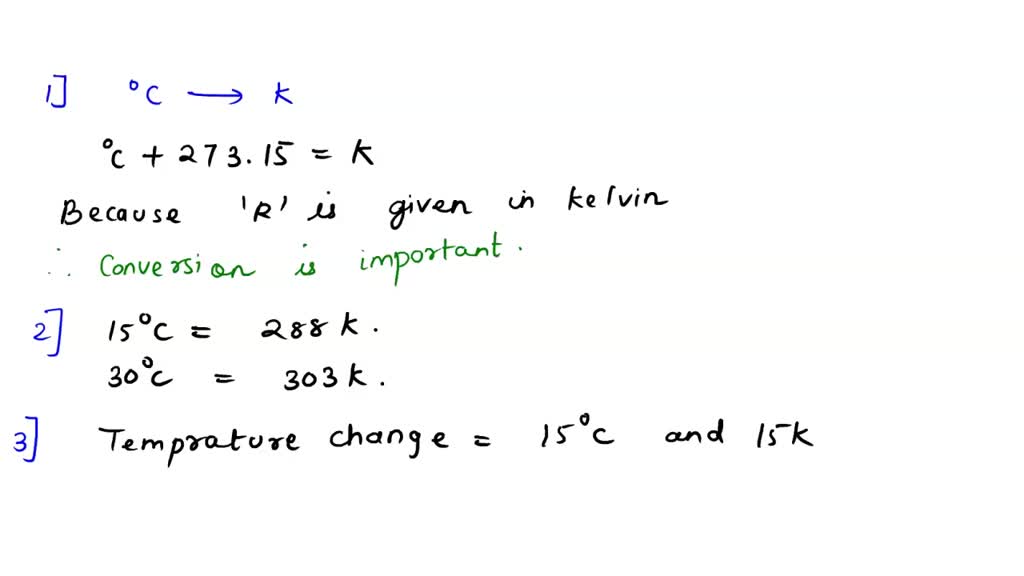 1] °C → K
°C + 273.15 = K
Because 'R' is given in kelvin
∴ Conversion is important.
2] 15°C = 288 K.
30°C = 303 K.
3] Temprature change = 15°C and 15K